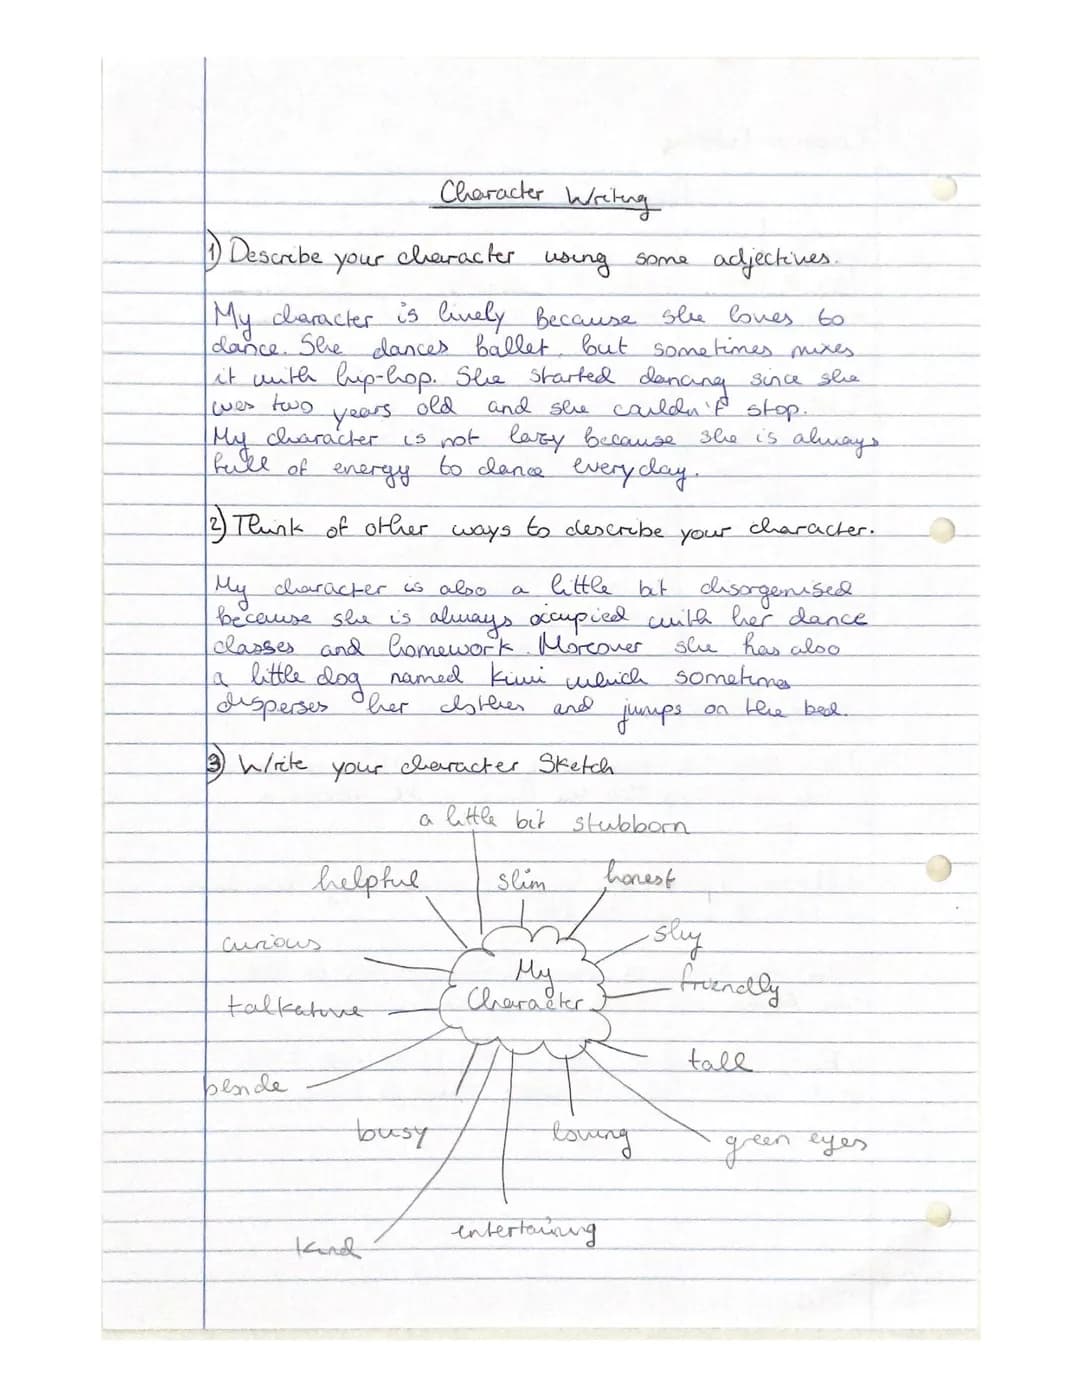 Character Writing
1) Describe your character using some adjectives.
My character is lively Because she loves to
dance. She dances ballet, but sometimes mixes
it with hip-hop. She started dancing since she
was two years old and she couldn't stop.
My character is not lazy because she is always
full of energy to dance everyday.
2) Think of other ways to describe your character.
My character is also a little bit disorgenised
because she is always occupied with her dance
classes and homework. Moreover she has also
a little dog named kiwi which sometimes
disperses her clothes and jumps on the bed.
3) Write your character Sketch
a little bit stubborn
helpful slim honest
curious shy
My
Character
friendly
talkative
tall
blonde
busy loving green eyes
entertaining
kind